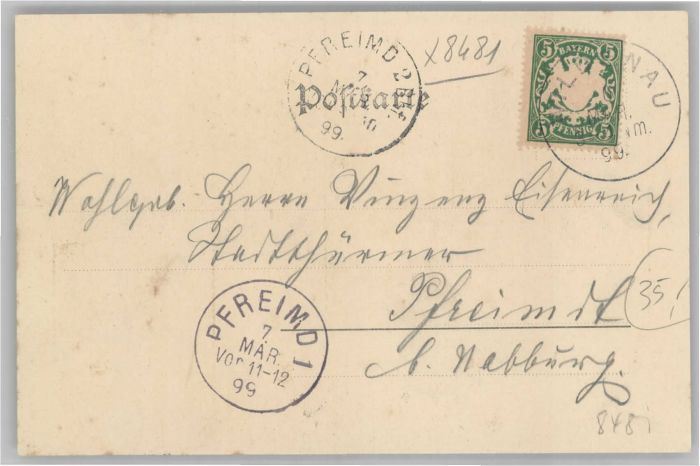 PFREIMD 2
7
99
x8481
Postkarte
5 BAYERN 5
5 PFENNIG 5
NAU
99.
Wohlgeb. Herrn Vinzenz Eisenreich,
Stadtthürmer
Pfreimdt
35!
b. Nabburg.
PFREIMD 1
7
MÄR.
Vor 11-12
99